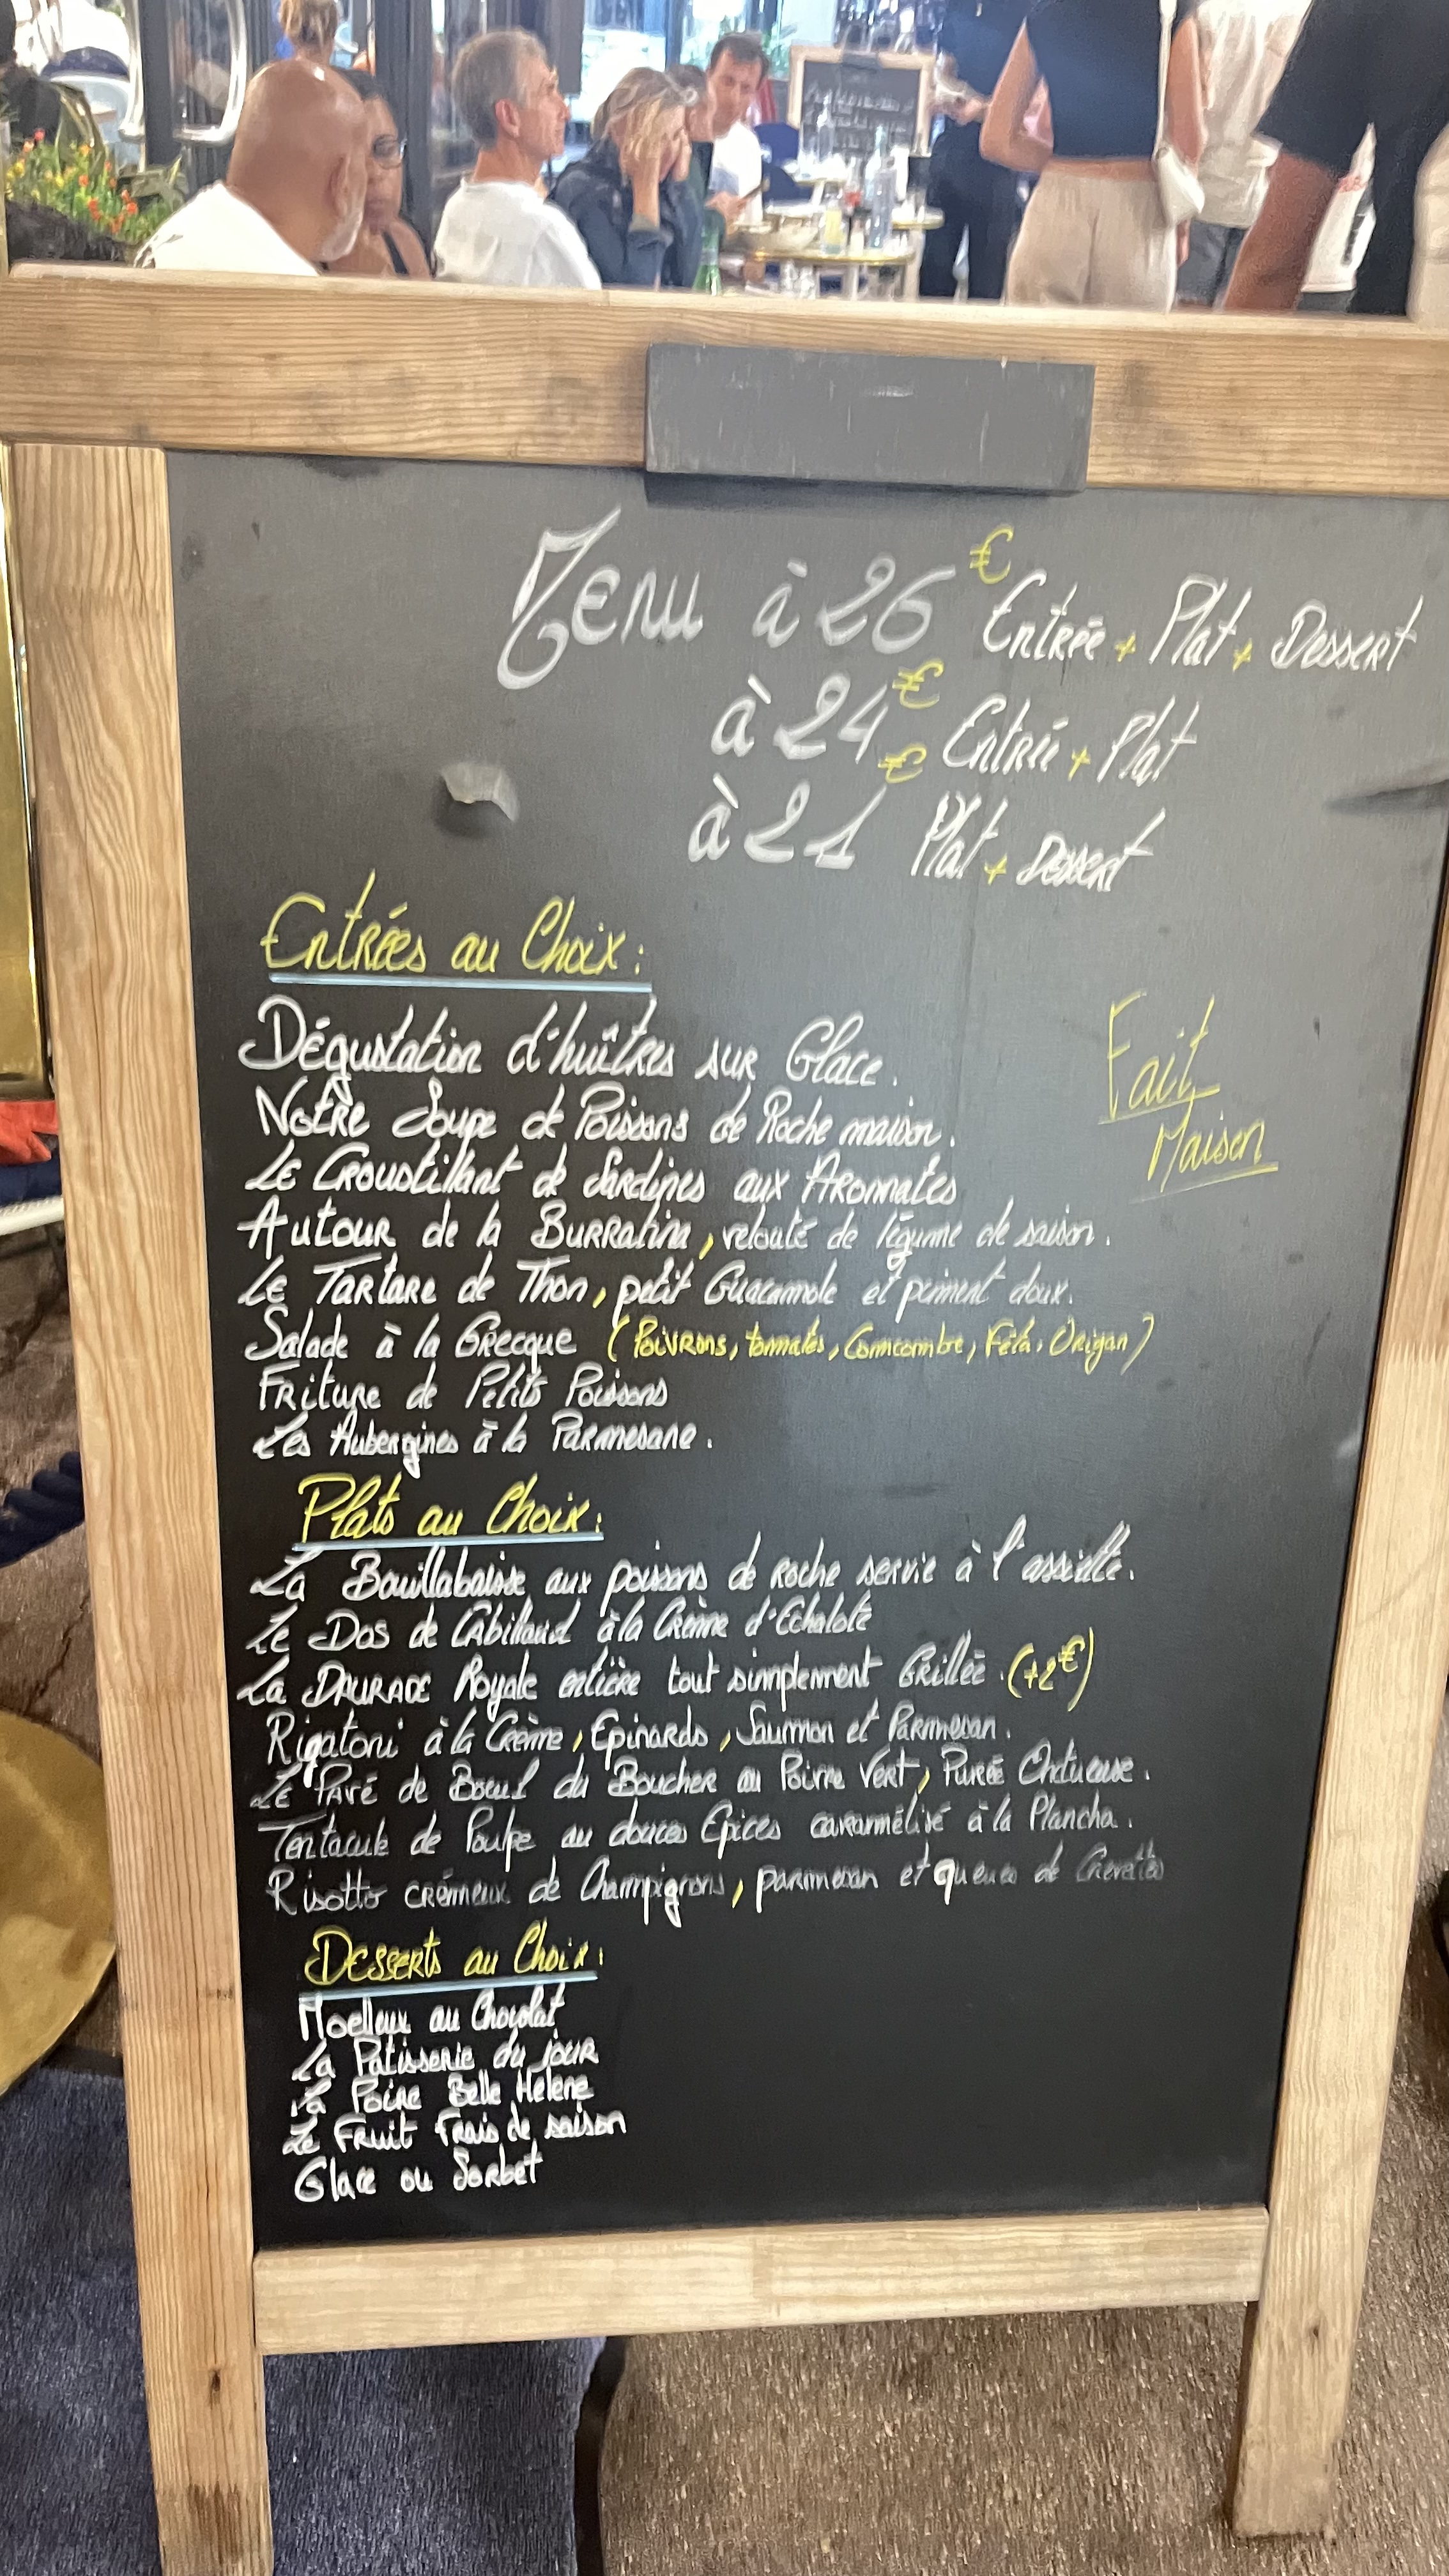 Menu à 26€ Entrée + Plat + Dessert
à 24€ Entrée + Plat
à 21€ Plat + Dessert
Entrées au Choix :
Dégustation d'huîtres sur Glace.
Notre Soupe de Poissons de Roche maison.
Le Croustillant de Sardines aux Aromates
Autour de la Burratina, velouté de légume de saison.
Le Tartare de Thon, petit Guacamole et piment doux.
Salade à la Grecque (Poivrons, tomates, Concombre, Féta, Origan)
Friture de Petits Poissons
Les Aubergines à la Parmesane.
Fait
Maison
Plats au Choix :
La Bouillabaisse aux poissons de roche servie à l'assiette.
Le Dos de Cabillaud à la Crème d'Echalote
La Daurade Royale entière tout simplement Grillée. (+2€)
Rigatoni à la Crème, Epinards, Saumon et Parmesan.
Le Pavé de Boeuf du Boucher au Poivre Vert, Purée Onctueuse.
Tentacule de Poulpe au douces Epices caramélisé à la Plancha.
Risotto crémeux de Champignons, parmesan et queues de Crevettes
Desserts au Choix :
Moelleux au Chocolat
La Patisserie du jour
La Poire Belle Helene
Le Fruit Frais de saison
Glace ou Sorbet